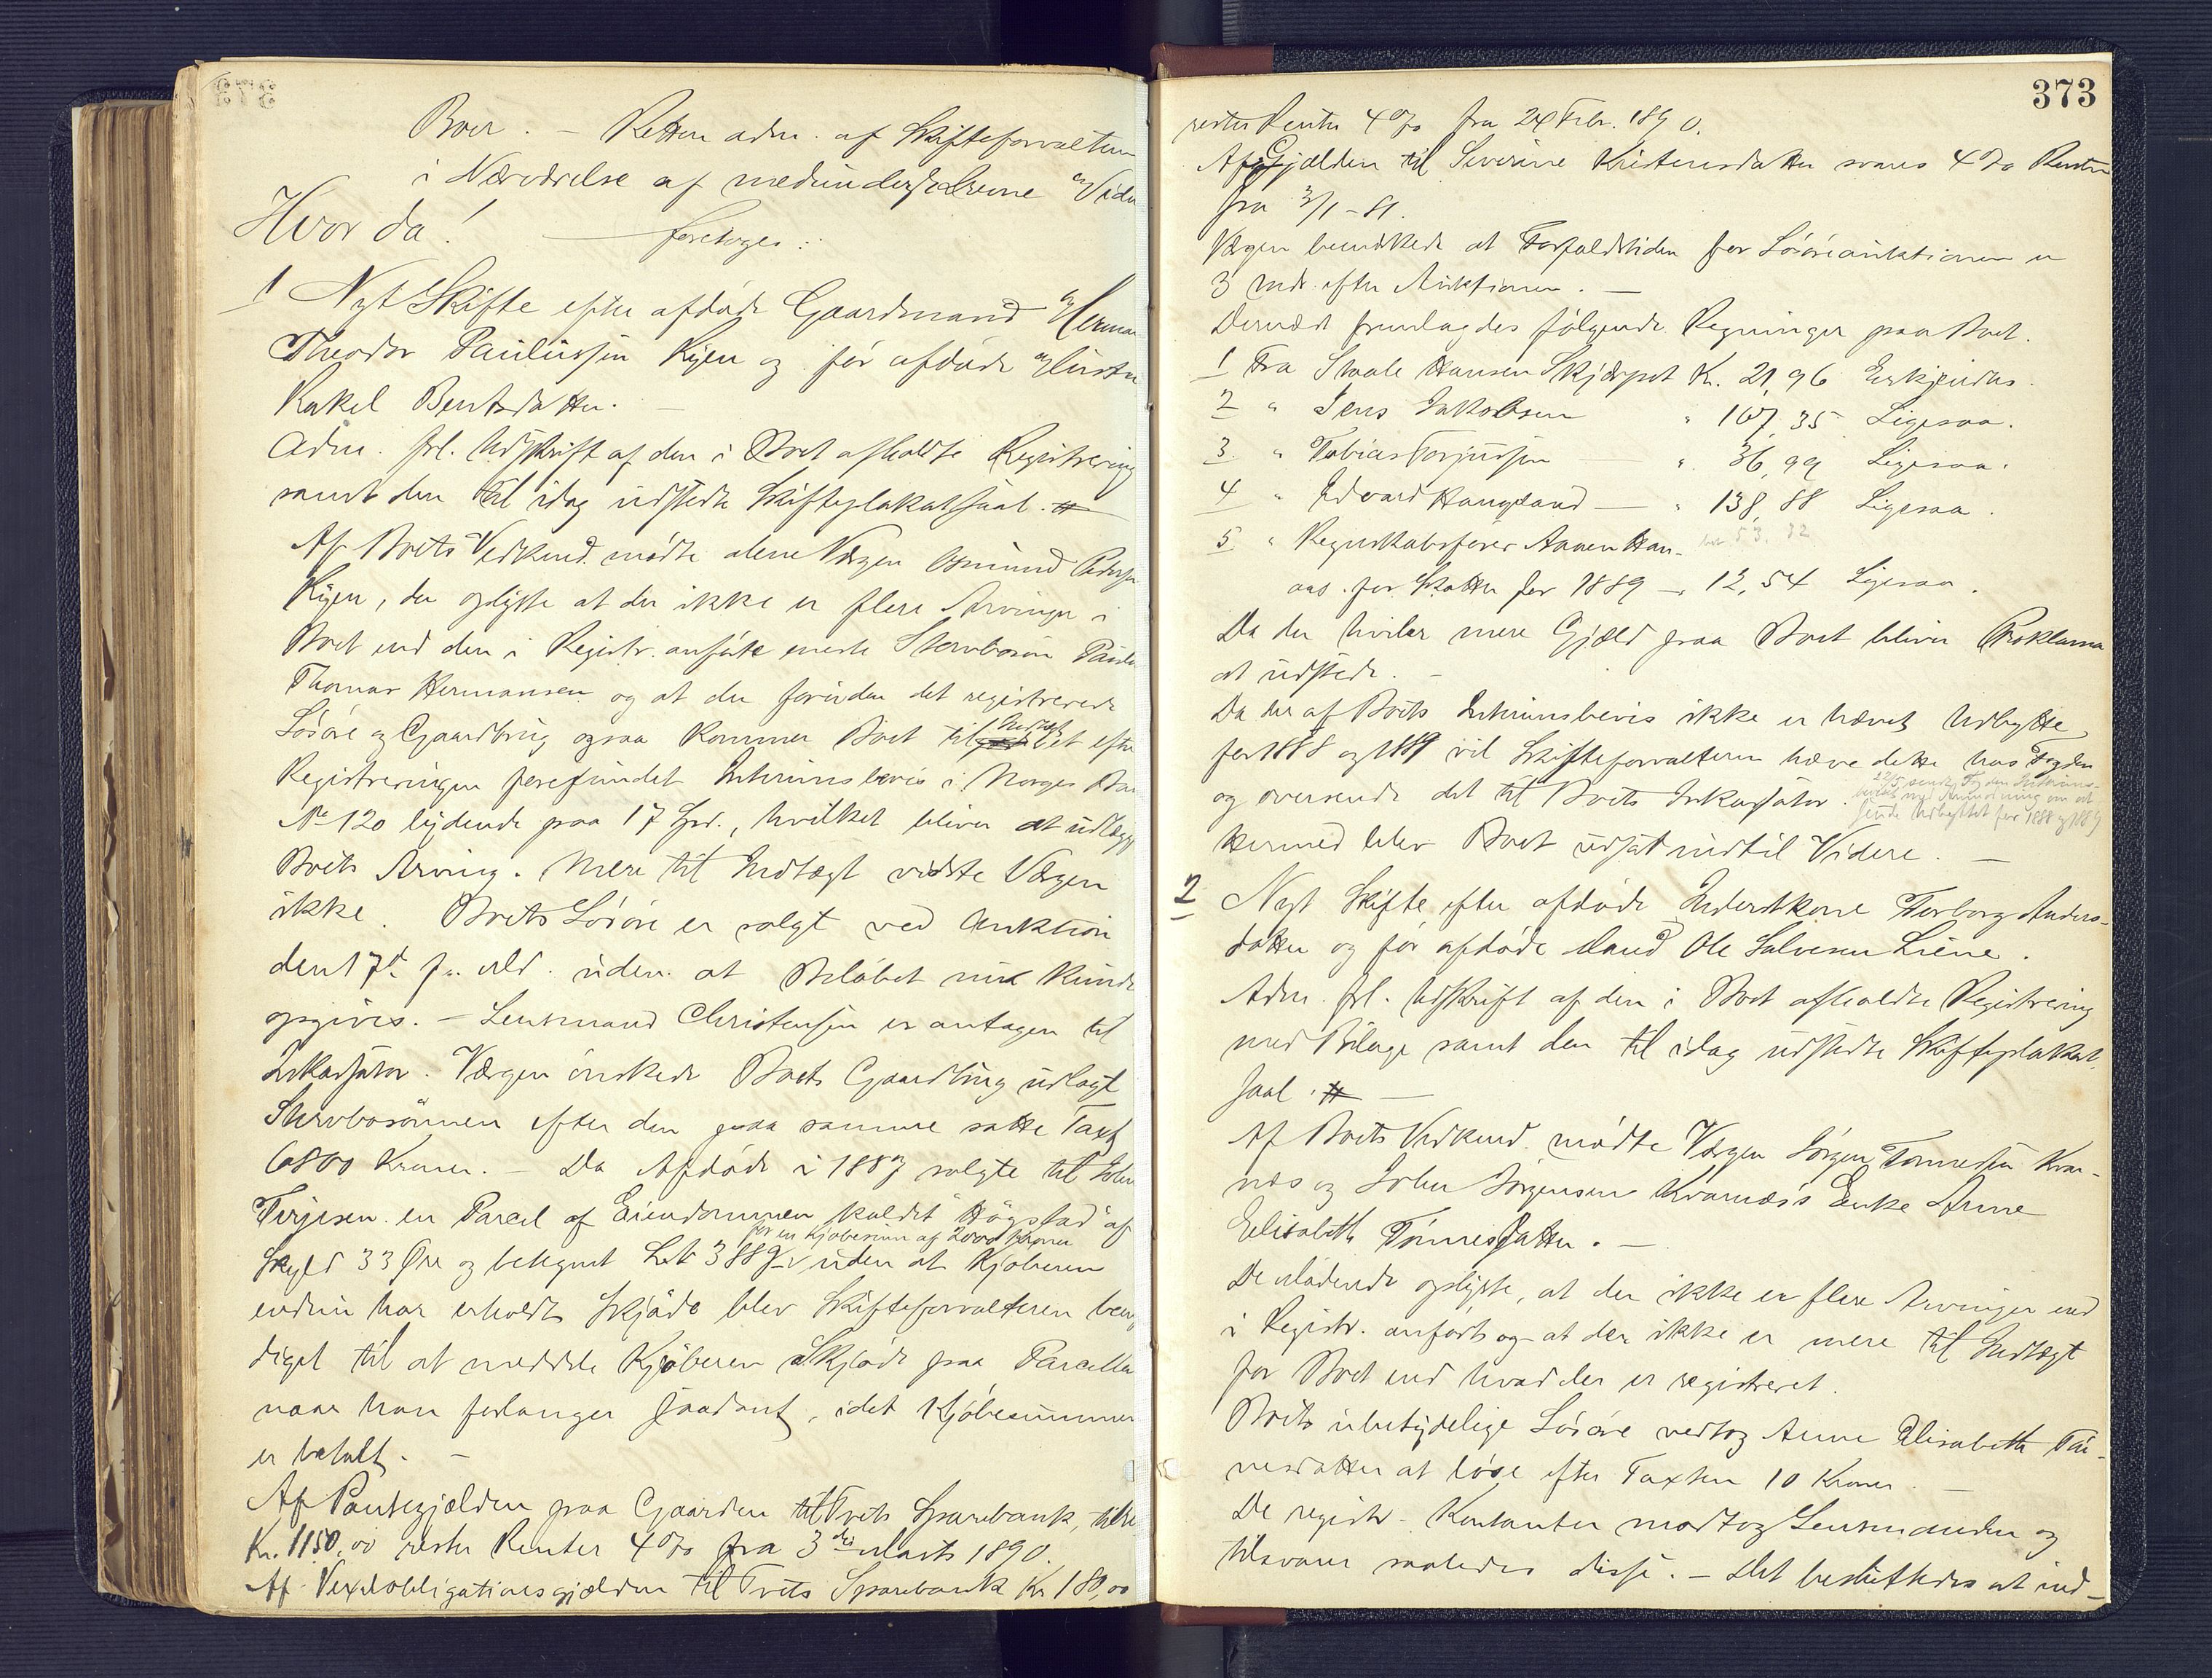 Boer. - Retten adm. af Skifteforvalteren
i Nærværelse af medunderskrevne Vidn
Hvor da! foretoges:
1 Nyt Skifte efter afdøde Gaardmand Herman
Theodor Paulussen Kyen og før afdøde Hustru
Rakel Bentsdatter. -
Adm. frl. Udskrift af den i Boet afholdte Registrering
samt den til idag udstedte Skifteplakat saal. #
Af Boets Vedkend. mødte alene Værgen Osmund Peders
Kyen, der oplyste at der ikke er flere Arvinger i
Boet end den i Registr. anførte eneste Stervbosøn Paulus
Thomas Hermansen og at der foruden det registrerede
Løsøre og Gaardbrug ogsaa kommer Boet til Indtægt et efter
Registreringen forefundet Interimsbevis i Norges Ban
No 120 lydende paa 17 Spd., hvilket bliver at udlægge
Boets Arving. Mere til Indtægt vidste Værgen
ikke. Boets Løsøre er solgt ved Auktion
den 17de f. Md. uden at Beløbet nu kunde
opgives. - Lensmand Christensen er antagen til
Inkassator. Værgen ønskede Boets Gaardbrug udlagt
Stervbosønnen efter den paa samme satte Taxt
6800 Kroner. - Da Afdøde i 1887 solgte til John
Terjesen en Parcel af Eiendommen kaldet "Høgstad" af
for en Kjøbesum af 2000 Kroner
Skyld 33 Øre og betegnet Lit 388 uden at Kjøberen
endnu har erholdt Skjøde blev Skifteforvalteren bemyn
diget til at meddele Kjøberen Skjøde paa Parcellen
naar han forlanger saadant, idet Kjøbesummen
er betalt. -
Af Pantegjælden paa Gaarden til Tvets Sparebank,
Kr. 1150,00 rester Renter 4% fra 3die Marts 1890.
Af Vexelobligationsgjælden til Tvets Sparebank Kr 180,00
373
rester Renter 4% fra 24 Febr. 1890.
Af Gjælden til Severine Kristensdatter svares 4% Renter
fra 3/1-81.
Værgen bemærkede at Forfaldstiden for Løsøreauktionen er
3 Mdr. efter Auktionen. -
Dernæst fremlagdes følgende Regninger paa Boet.
1 Fra Staale Hansen Skjærpet Kr. 21,96 Erkjendes.
2 " Jens Jakobsen " 107 35 Ligesaa.
3. " Tobias Torjussen " 36,99 Ligesaa.
4 " Edvard Haugland - " 138,88 Ligesaa.
5 " Regnskabsfører Aanen Han-
aas for Skatter for 1889 - 12,54 Ligesaa.
Da der hviler mere Gjæld paa Boet bliver Proklama
at udstede. -
Da der af Boets Interimsbevis ikke er hævet Udbytte
for 1888 og 1889 vil Skifteforvalteren hæve dette hos Fogden
og oversende det til Boets Inkassator.
22/5 sendt Fogden Interims-
bevis med Anmodning om at
sende Udbyttet for 1888 og 1889
Hermed blev Boet udsat indtil Videre. -
2 Nyt Skifte efter afdøde Inderstkone Torborg Anders-
datter og før afdøde Mand Ole Salvesen Liene.
Adm. frl. Udskrift af den i Boet afholdte Registrering
med Bilage samt den til idag udstedte Skifteplakat
saal. # -
Af Boets Vedkend. mødte Værgen Jørgen Tønnesen Kvar-
næs og John Jørgensen Kvarnæs's Enke Anne
Elisabeth Tønnesdatter. -
De Mødende oplyste, at der ikke er flere Arvinger end
i Registr. anført og at der ikke er mere til Indtægt
for Boet end hvad der er registreret.
Boets ubetydelige Løsøre vedtog Anne Elisabeth Tøn-
nesdatter at løse efter Taxten 10 Kroner. -
De registr. Kontanter modtog Lensmanden og
tilsvarer saaledes disse. - Det besluttedes at ind-